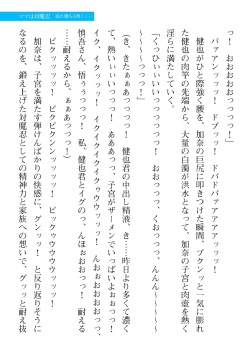 ママは対魔忍
っ！　おおおおおっっっ！
　バァアンッッッ！　ドプッ！　ドバドバァアアアッッ！
　健也がひと際強く腰を、加奈の巨尻に叩きつけた瞬間。ブクンッと一気に膨れ
た健也の肉竿の先端から、大量の白濁が洪水となって、加奈の子宮と肉壷を熱く
淫らに満たしていく。
「くっひぃぃぃっっっ！　おおっっっ、くおおっっっ、んんん～～～～っ！
～～～～っっ！」
（き、きたぁあっっっ、健也君の中出し精液、き…昨日より多くて濃く
て、熱いぃぃいっっっ！　ぁああっっっ、子宮がザーメンでいっぱいよぉおっっ！
イク、イクゥッッ！　イクイクイクイクゥウウッッ！　んおぉおおおっっ、
慎吾さん、悟ぅっっっ！　私、健也君とイグのっっ、んほぉおおっっ！
……耐えるから、ぁぁあっっっ！）
　ビクッッッッ！　ビクビクンンッッ！　ビックゥウウウッッッ！
　加奈は、子宮を満たす弾けんばかりの快感に、グンッ！　と反り返りそうに
なるのを、鍛え上げた対魔忍としての精神力と家族への想いで、グッと耐え抜